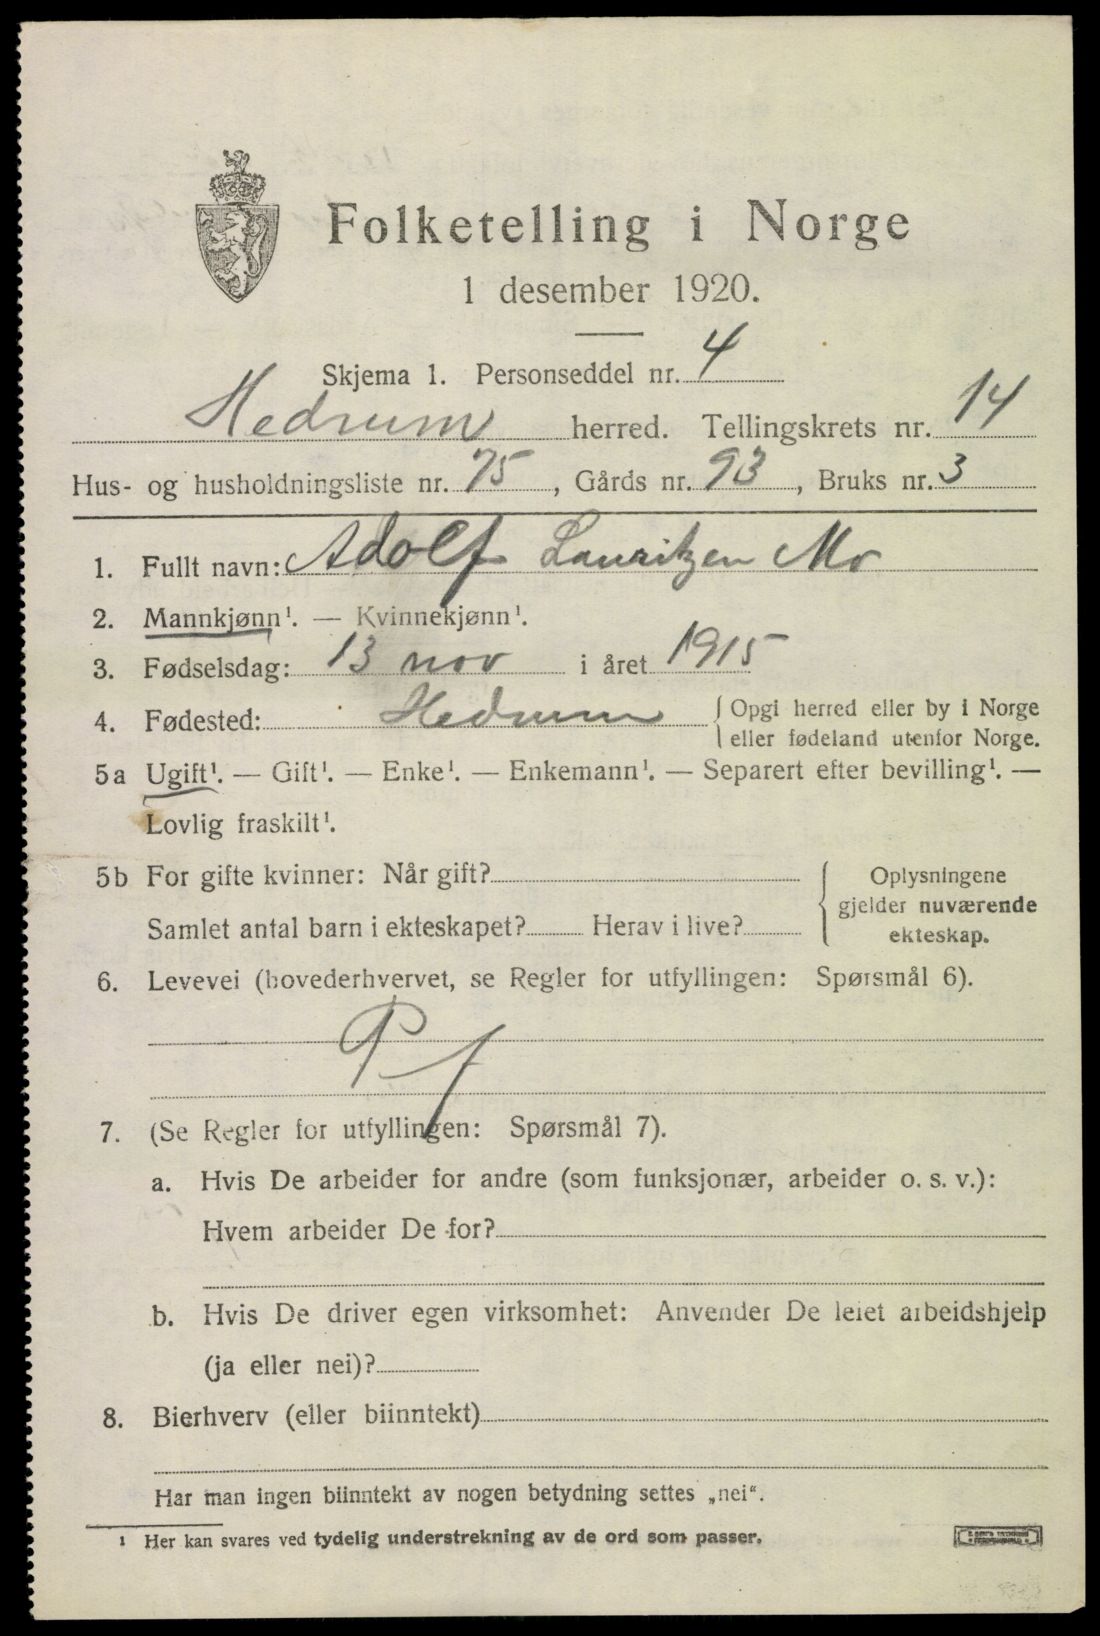 Folketelling i Norge
1 desember 1920.
Skjema 1. Personseddel nr. 4
Hedrum herred. Tellingskrets nr. 14
Hus- og husholdningsliste nr. 75, Gårds nr. 93, Bruks nr. 3
1. Fullt navn: Adolf Lauritzen Mo
2. Mannkjønn¹. — Kvinnekjønn¹.
3. Fødselsdag: 13 nov i året 1915
4. Fødested: Hedrum { Opgi herred eller by i Norge
eller fødeland utenfor Norge.
5a Ugift¹. — Gift¹. — Enke¹. — Enkemann¹. — Separert efter bevilling¹. —
Lovlig fraskilt¹.
5b For gifte kvinner: Når gift?
Samlet antal barn i ekteskapet? Herav i live?
{ Oplysningene
gjelder nuværende
ekteskap.
6. Levevei (hovederhvervet, se Regler for utfyllingen: Spørsmål 6).
P f
7. (Se Regler for utfyllingen: Spørsmål 7).
a. Hvis De arbeider for andre (som funksjonær, arbeider o. s. v.):
Hvem arbeider De for?
b. Hvis De driver egen virksomhet: Anvender De leiet arbeidshjelp
(ja eller nei)?
8. Bierhverv (eller biinntekt)
Har man ingen biinntekt av nogen betydning settes „nei“.
¹ Her kan svares ved tydelig understrekning av de ord som passer.